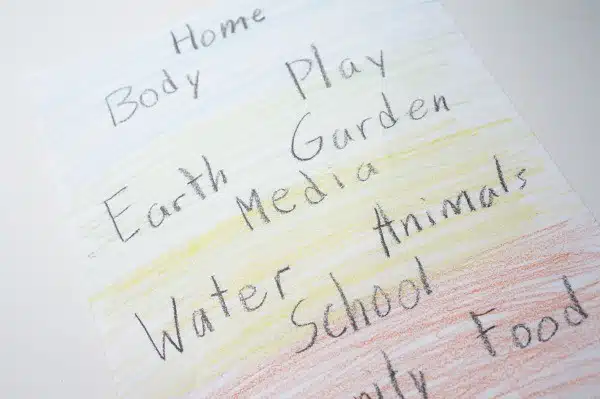 Home
Body Play
Earth Garden
Media
Water Animals
School
Food